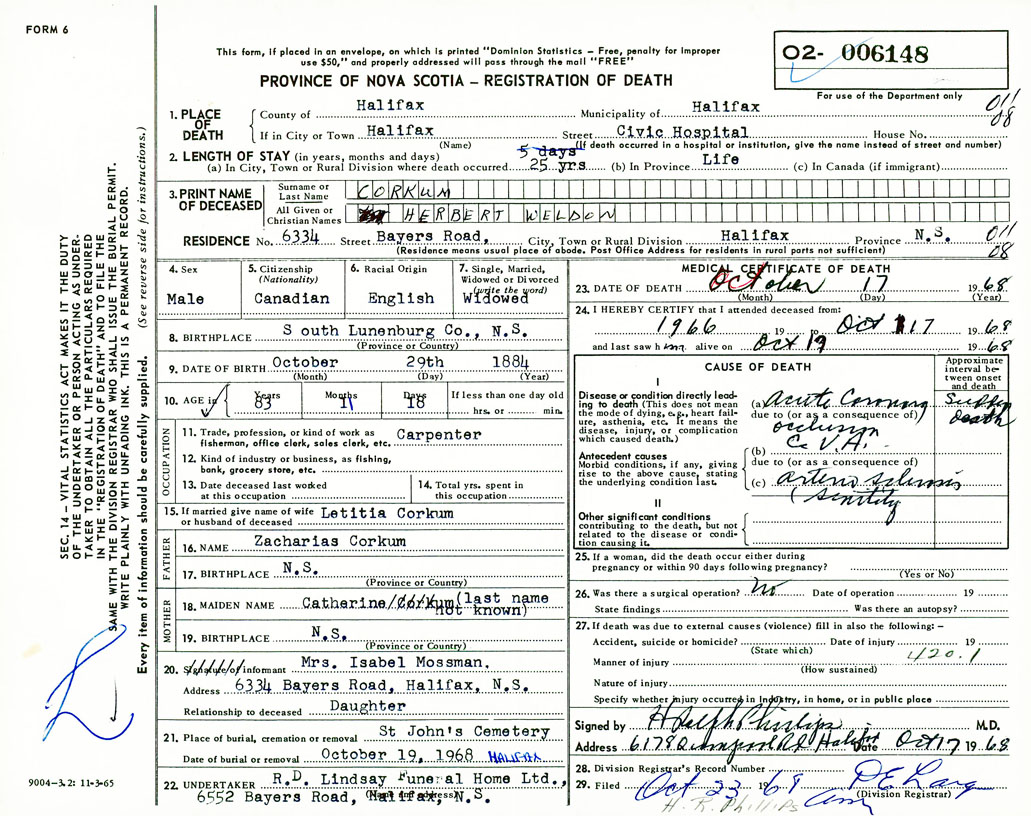 FORM 6
This form, if placed in an envelope, on which is printed "Dominion Statistics – Free, penalty for improper
use $50," and properly addressed will pass through the mail "FREE"
PROVINCE OF NOVA SCOTIA – REGISTRATION OF DEATH
02- 006148
For use of the Department only
011
08
1. PLACE OF DEATH
County of Halifax Municipality of Halifax
If in City or Town Halifax Street Civic Hospital House No.
(Name) (If death occurred in a hospital or institution, give the name instead of street and number)
2. LENGTH OF STAY (in years, months and days) 5 days
(a) In City, Town or Rural Division where death occurred 25 yrs. (b) In Province Life (c) In Canada (if immigrant)
3. PRINT NAME OF DECEASED
Surname or Last Name CORKUM
All Given or Christian Names HERBERT WELDON
RESIDENCE No. 6334 Street Bayers Road, City, Town or Rural Division Halifax Province N.S.
(Residence means usual place of abode. Post Office Address for residents in rural parts not sufficient)
011
08
4. Sex
Male
5. Citizenship
(Nationality)
Canadian
6. Racial Origin
English
7. Single, Married,
Widowed or Divorced
(write the word)
Widowed
8. BIRTHPLACE South Lunenburg Co., N.S.
(Province or Country)
9. DATE OF BIRTH October 29th 1884
(Month) (Day) (Year)
10. AGE in Years Months Days If less than one day old
83 11 18 hrs. or min.
OCCUPATION
11. Trade, profession, or kind of work as Carpenter
fisherman, office clerk, sales clerk, etc.
12. Kind of industry or business, as fishing,
bank, grocery store, etc.
13. Date deceased last worked
at this occupation
14. Total yrs. spent in
this occupation
15. If married give name of wife Letitia Corkum
or husband of deceased
FATHER
16. NAME Zacharias Corkum
17. BIRTHPLACE N.S.
(Province or Country)
MOTHER
18. MAIDEN NAME Catherine/Corkum(last name
not known)
19. BIRTHPLACE N.S.
(Province or Country)
20. Signature of informant Mrs. Isabel Mossman.
Address 6334 Bayers Road, Halifax, N.S.
Relationship to deceased Daughter
21. Place of burial, cremation or removal St John's Cemetery
Date of burial or removal October 19, 1968 HALIFAX
22. UNDERTAKER R.D. Lindsay Funeral Home Ltd.,
6552 Bayers Road, Halifax, N.S.
(Name and address)
MEDICAL CERTIFICATE OF DEATH
23. DATE OF DEATH October 17 1968
(Month) (Day) (Year)
24. I HEREBY CERTIFY that I attended deceased from:
1966 19 to Oct 17 1968
and last saw him alive on Oct 19 1968
CAUSE OF DEATH
Approximate interval between onset and death
I
Disease or condition directly lead-
ing to death (This does not mean
the mode of dying, e.g., heart fail-
ure, asthenia, etc. It means the
disease, injury, or complication
which caused death.)
(a) Acute Coronary Sudden
due to (or as a consequence of) death
occlusion
Antecedent causes
Morbid conditions, if any, giving
rise to the above cause, stating
the underlying condition last.
(b) C.V.A.
due to (or as a consequence of)
(c) arterio sclerosis
(senility
II
Other significant conditions
contributing to the death, but not
related to the disease or condi-
tion causing it.
25. If a woman, did the death occur either during
pregnancy or within 90 days following pregnancy?
(Yes or No)
26. Was there a surgical operation? No Date of operation 19
State findings Was there an autopsy?
27. If death was due to external causes (violence) fill in also the following: –
Accident, suicide or homicide? Date of injury 19
(State which) 420.1
Manner of injury
(How sustained)
Nature of injury
Specify whether injury occurred in Industry, in home, or in public place
Signed by H Ralph Phillips M.D.
Address 6178 Quinpool Rd Halifax Date Oct 17 1968
28. Division Registrar's Record Number
29. Filed Oct 23 1968
(Division Registrar)
H. R. Phillips
SEC. 14 – VITAL STATISTICS ACT MAKES IT THE DUTY
OF THE UNDERTAKER OR PERSON ACTING AS UNDER-
TAKER TO OBTAIN ALL THE PARTICULARS REQUIRED
IN THE "REGISTRATION OF DEATH" AND TO FILE THE
SAME WITH THE DIVISION REGISTRAR WHO SHALL ISSUE THE BURIAL PERMIT.
WRITE PLAINLY WITH UNFADING INK. THIS IS A PERMANENT RECORD.
Every item of information should be carefully supplied. (See reverse side for instructions.)
9004-3.2: 11-3-65